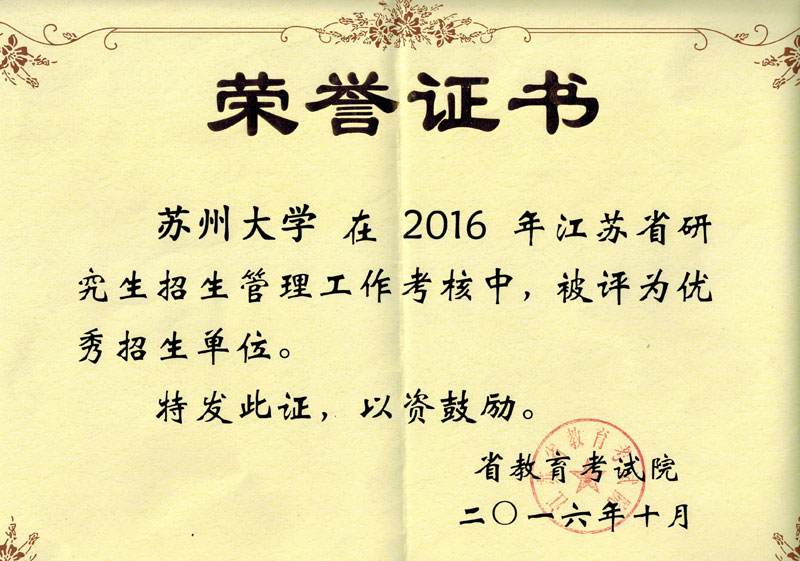 荣誉证书
苏州大学 在 2016 年江苏省研
究生招生管理工作考核中，被评为优
秀招生单位。
特发此证，以资鼓励。
省教育考试院
二〇一六年十月
江苏省教育考试院